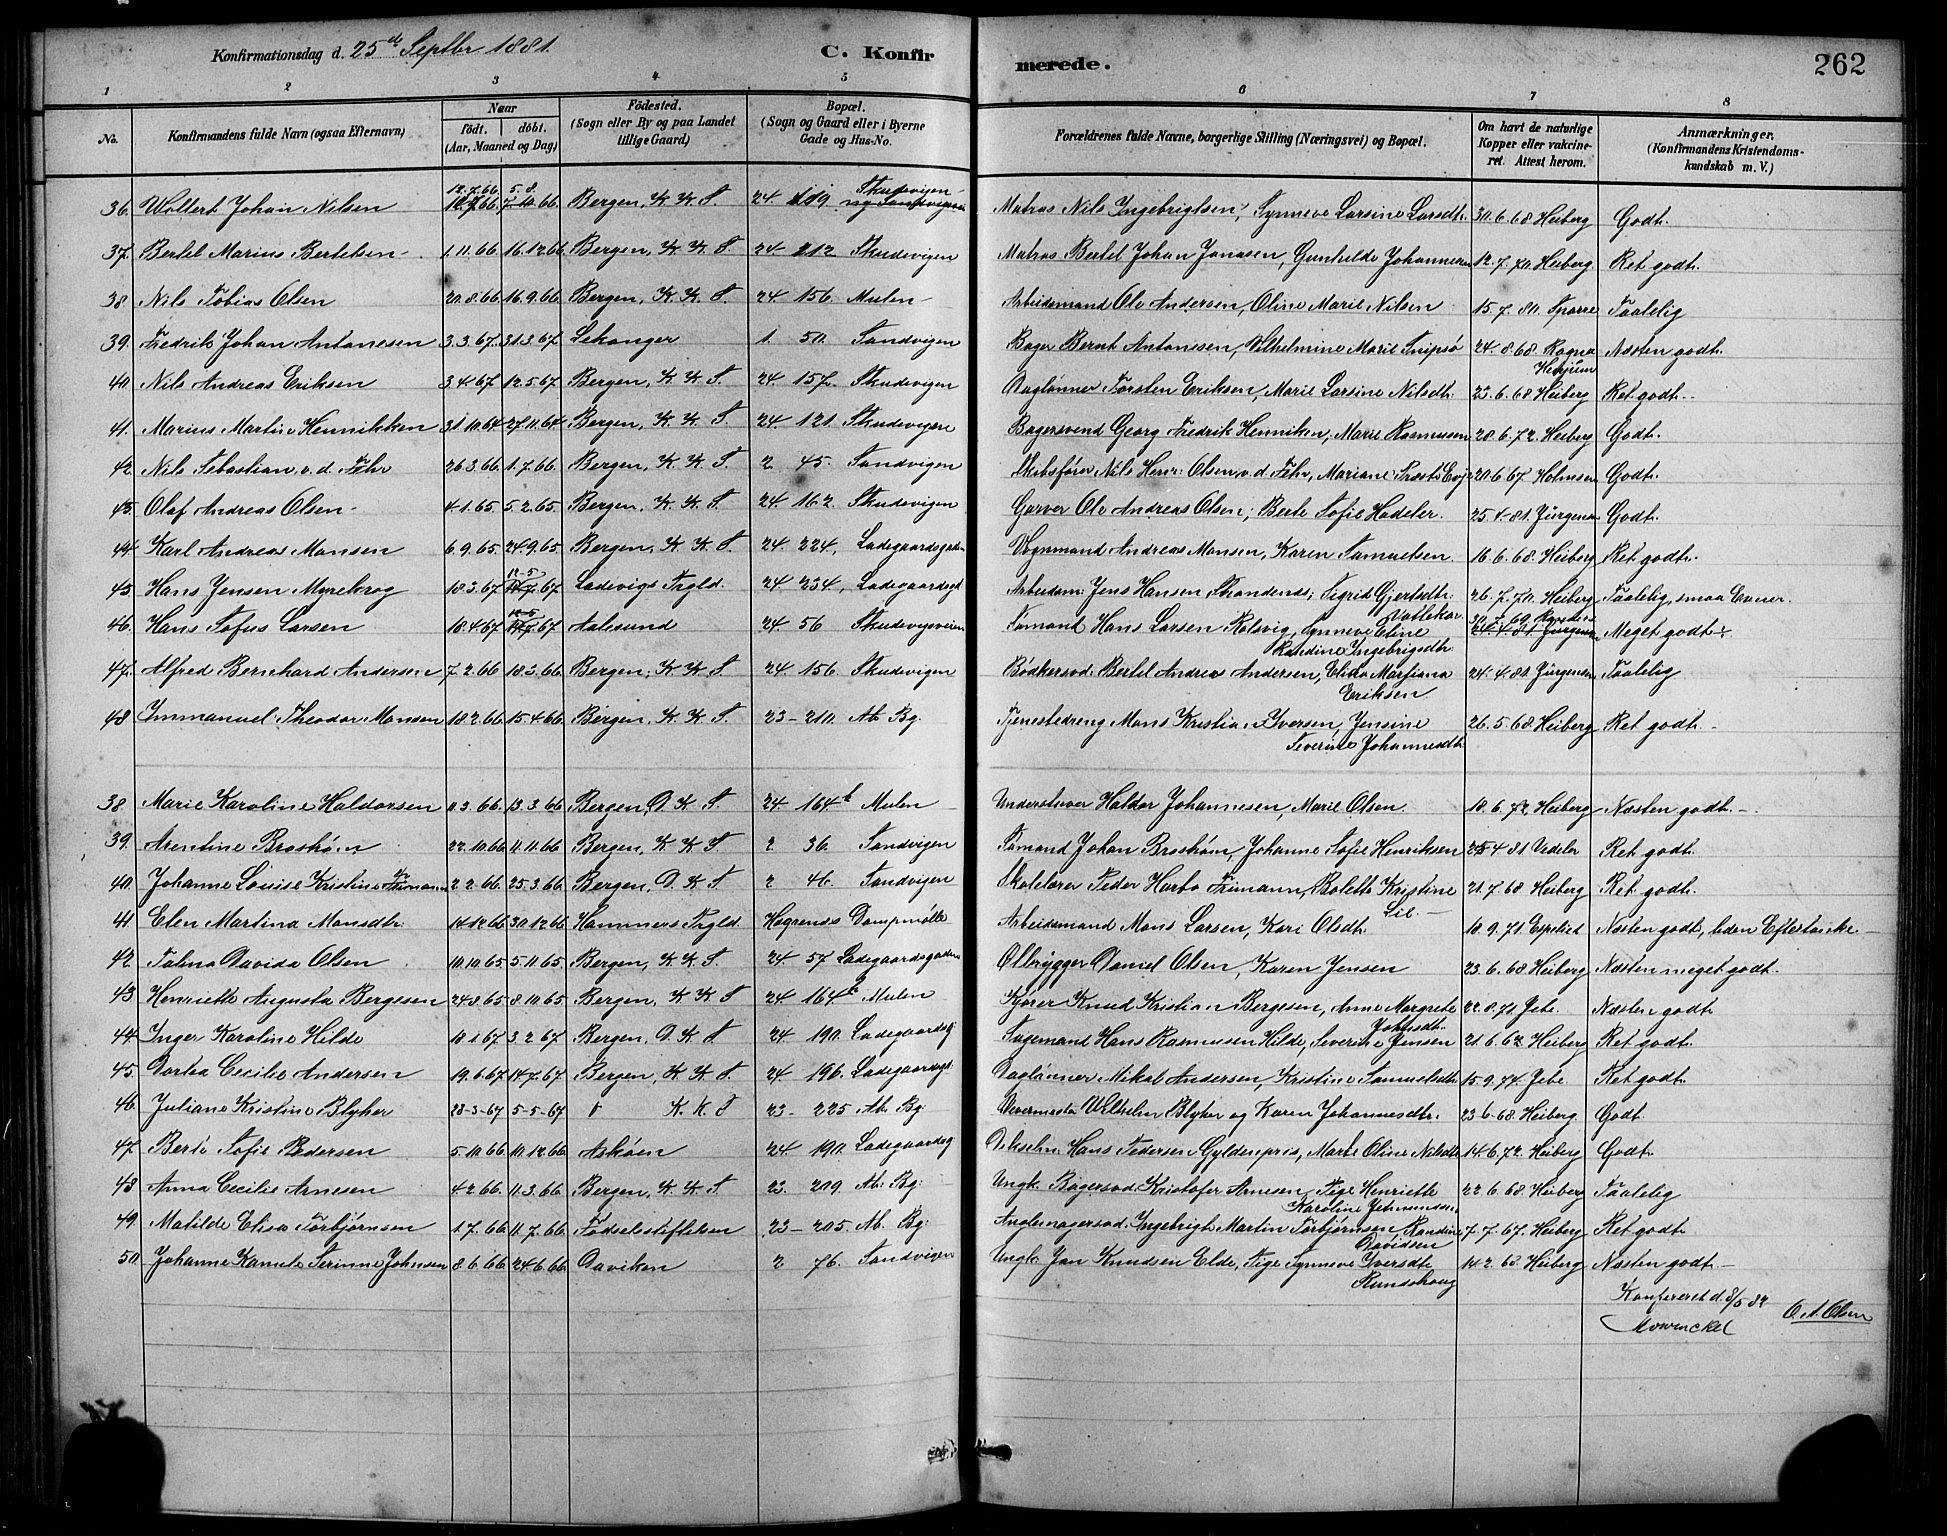 Konfirmationsdag d. 25de Septbr 1881.
C. Konfirmerede.
262
1 2 3 4 5 6 7 8
No. Konfirmandens fulde Navn (ogsaa Efternavn) Naar født. døbt. (Aar, Maaned og Dag) Fødested. (Sogn eller By og paa Landet tillige Gaard) Bopæl. (Sogn og Gaard eller i Byerne Gade og Hus-No. Forældrenes fulde Navne, borgerlige Stilling (Næringsvei) og Bopæl. Om havt de naturlige Kopper eller vakcineret. Attest herom. Anmærkninger. (Konfirmandens Kristendomskundskab m. V.)
36. Wollert Johan Nilsen 12.7.66 5.8. Bergen, K. K. S. 24 119 Skudevigen Matros Nils Ingebrigtsen, Synneve Larsine Larsdtr. 30.6.68 Heiberg Godt.
37. Bertel Marius Bertelsen 1.11.66 16.12.66 Bergen, K. K. S. 24 112 Skudevigen Matros Bertel Johan Jonasen, Gunhilde Johannesen 12.7.70 Heiberg Ret godt.
38. Nils Tobias Olsen 20.8.66 16.9.66 Bergen, K. K. S. 24 156 Mulen Arbeidsmand Ole Andersen, Oline Marie Nilsen 15.7.80. Sparre Taalelig
39. Fredrik Johan Antonesen 3.3.67 31.3.67 Lekanger 1. 50. Sandvigen Bager Bernt Antonesen, Vilhelmine Marie Snipsø 24.8.68. Næsten godt.
40. Nils Andreas Eriksen 3.4.67 12.5.67 Bergen, K. K. S. 24 157. Skudevigen Daglønner Torsten Eriksen, Marie Larsine Nilsdtr. 23.6.68 Heiberg Ret godt.
41. Marius Martin Henrikken 31.10.64 27.11.64 Bergen, K. K. S. 24. 121. Skudevigen Bagersvend Georg Fredrik Henniken, Marie Rasmusen 28.6.72. Heiberg Godt.
42. Nils Sebastian v. d. Fehr 26.3.66 1.7.66 Bergen, K. K. S. 2 45. Sandvigen Skibsfører Nils Henr: Olsen v. d. Fehr, Mariane 20.6.67 Holmsen Godt.
43. Olaf Andreas Olsen 4.1.65. 5.2.65. Bergen, K. K. S. 24 162. Skudevigen Garver Ole Andreas Olsen, Berte Sofie Hadeler. 25.4.81. Jürgensen Godt.
44 Karl Andreas Monsen 6.9.65 24.9.65 Bergen, K. K. S. 24. 224, Ladegaardsgaden Vognmand Andreas Monsen, Karen Samuelsen. 16.6.68 Heiberg Ret godt.
45. Hans Jensen Myrekrog 18.3.67 12.5 67 Ladevigs Prgld. 24 234, Ladegaardsgd Arbeidsm: Jens Hansen Strandenes, Sigrid Gjertsdtr. Vallekar 26.7.70. Heiberg Taalelig, smaa Evner.
46. Hans Sofus Larsen 18.4.67 Aalesund 24. 56 Skudevigsveien Sømand Hans Larsen Rotsvig, Synneve Eline Randine Ingebrigtsdtr. 30.7.69 Meget godt
47. Alfred Bernhard Andersen 7.2.66 18.3.66 Bergen, K. K. S. 24 156 Skudevigen Bødkersvd: Bertel Andreas Andersen, Elida Marjiana Eriksen 24.4.81 Jürgensen Taalelig
48 Immanuel Theodor Monsen 18.2.66 15.4.66 Bergen, K. K. S. 23 – 210. Ab. Bg: Tjenestedreng Mons Kristian Iversen, Jensine Severine Johannesdtr. 26.5.68 Heiberg Ret godt.
38. Marie Karoline Haldorsen 11.3.66 13.3.66 Bergen, D. K. S. 24 164b Mulen Understuver Haldor Johannesen, Marie Olsen. 18.6.72. Heiberg Næsten godt.
39. Arentine Broshøm 22.10.66 11.11.66 Bergen, K. K. S 2 36. Sandvigen Sømand Johan Broshøm, Johanne Sofie Henriksen 25.4 81 Vedeler Ret godt.
40. Johanne Louise Kristine Frimann 2.2.66 25.3.66 Bergen, D. K. S 2 46. Sandvigen Skolelærer Peder Harbo Frimann, Bolette Kristine Lie. 21.7.68 Heiberg Ret godt.
41 Elen Martina Monsdtr. 14.12.66 30.12.66 Hammers Prgld. Hegrenæs Dampmølle Arbeidsmand Mons Larsen, Kari Olsdtr. 18.9.71. Espelid Næsten godt, liden Eftertanke.
42. Talma Davida Olsen 10.10.65 5.11.65 Bergen, K. K. S. 24. 57 Ladegaardsgaden Ølbrygger Daniel Olsen, Karen Jensen 23.6.68 Heiberg Næsten meget godt.
43. Henriette Augusta Bergesen 24.8.65 8.10.65 Bergen, K. K. S 24 164b Mulen Kjører Knud Kristian Bergesen, Anne Margrete Johnsdtr. 22.8.71 Jebe. Næsten godt
44. Inger Karoline Hilde 10.1.67 3.2.67 Bergen, D. K. S 24 190. Ladegaardsg: Sagemand Hans Rasmusen Hilde, Severine Jensen 21.6.62 Heiberg Ret godt.
45. Dortea Cecilie Andersen 19.6.67 14.7.67 Bergen, K. K. S. 24 196. Ladegaardsgd: Daglønner Mikal Andersen, Kristine Samuelsdtr 15.9.74. Jebe. Ret godt.
46 Juliane Kristine Blyher 23-3-67 5-5-67 K. K. S 23 – 225 Ab. Bg: Vævermester Wilhelm Blyher og Karen Johannesdtr. 23 6-68. Heiberg Godt
47. Berte Sofie Pedersen 5.10.66 10.12.66 Askøen 24. 190. Ladegaardsg Hans Pedersen Gyldenpris, Marte Oline Nilsdtr 14.6.72. Heiberg Godt.
48. Anna Cecilie Arnesen 4.2.66 11.3.66 Bergen, K. K. S 23. 209. Ab. Bg: Ungk. Bagersvd: Kristofer Arnesen, Pige Henriette Karoline Johannesen 22.6.68. Heiberg Taalelig
49. Matilde Elisa Torbjørnsen 1.7.66 11.7.66 Fødselsstiftelsen 23 – 205. Ab. Bg: Anglemagersvd: Ingebrigt Martin Torbjørnsen, Randine Davidsen 7.7.67. Heiberg Ret godt.
50. Johanne Kamile Serinne Johnsen 8.6.66 24.6.66 Daviken 2 76. Sandvigen Ungk. Jon Knudsen Elde, Pige Synneve Iversdtr Rundehoug 14.2.68. Heiberg Næsten godt
Konfereret d. 8/5 82
Mowinckel O. A. Olsen